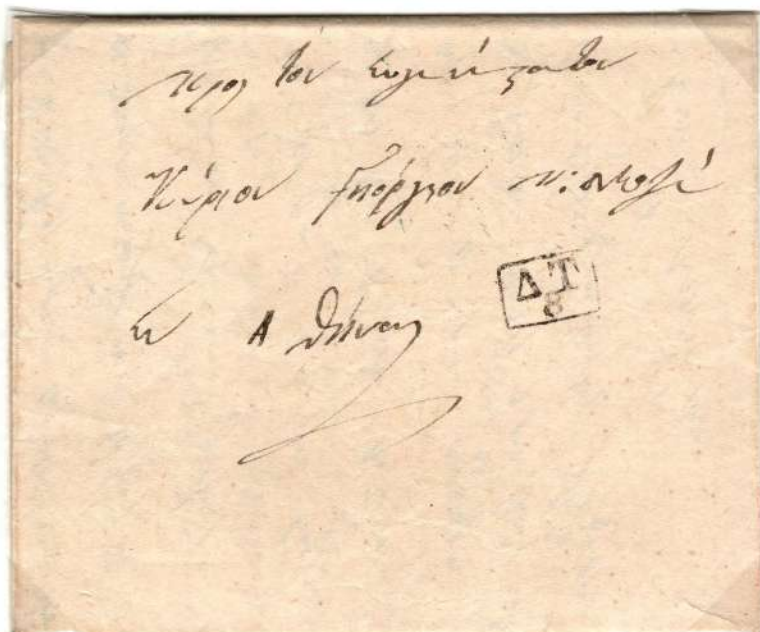 προς τον ευγενέστατον
Κύριον Γεώργιον
ΔΤ
8
Αθήνας